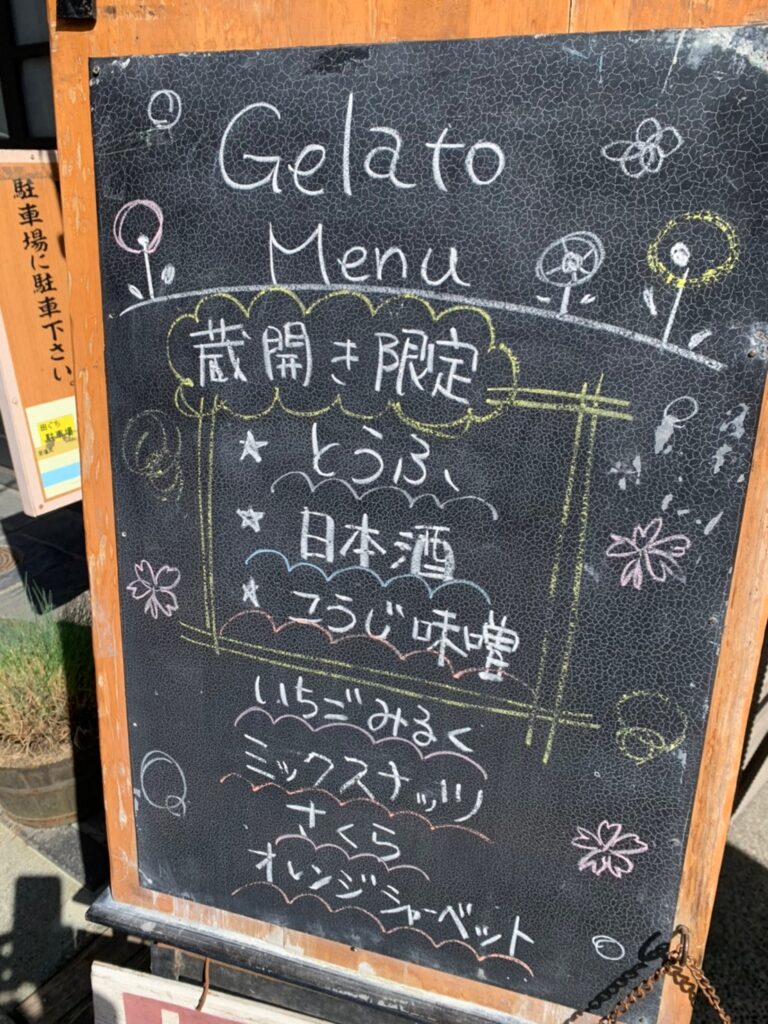 Gelato
Menu
蔵開き限定
★ とうふ
★ 日本酒
★ こうじ味噌
いちごみるく
ミックスナッツ
さくら
オレンジシャーベット
駐車場に駐車下さい。
田ぐち
駐車場